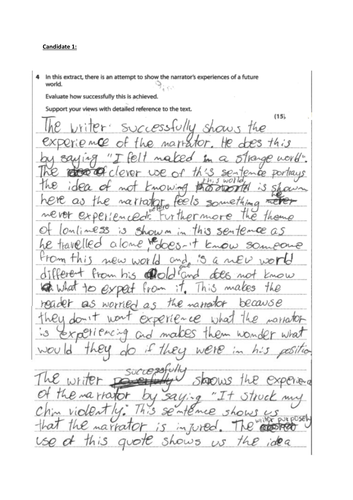 Candidate 1:
4 In this extract, there is an attempt to show the narrator's experiences of a future
world.
Evaluate how successfully this is achieved.
Support your views with detailed reference to the text.
(15)
The writer successfully shows the
experience of the narrator. He does this
by saying "I felt naked in a strange world".
The clever use of this sentence portrays
the idea of not knowing this world is shown
here as the narrator feels something
never experienced before. Furthermore the theme
of lonliness is shown in this sentence as
he travelled alone, he does-it know someone
from this new world and is a new world
different from his old and does not know
what to expect from it. This makes the
reader as worried as the narrator because
they don't wont experience what the narrator
is experiencing and makes them wonder what
would they do if they were in his position
The writer successfully shows the experience
of the narrator by saying "It struck my
chin violently." This sentence shows us
that the narrator is injured. The writer purposely
use of this quote shows us the idea